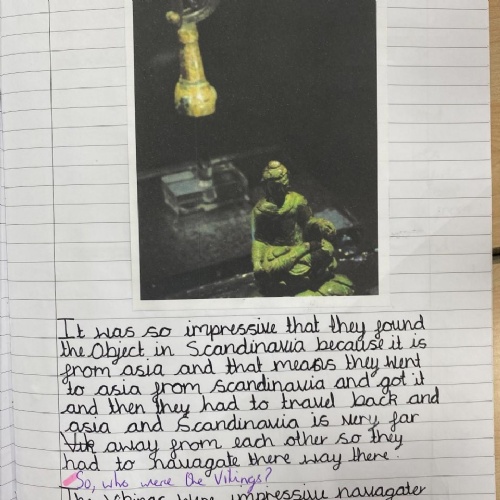 It was so impressive that they found
the Object in Scandinavia because it is
from asia and that means they went
to asia from scandinavia and got it
and then they had to travel back and
asia and Scandinavia is very far
away from each other so they
had to navagate there way there.
So, who were the Vikings?
The Vikings were impressive navagater